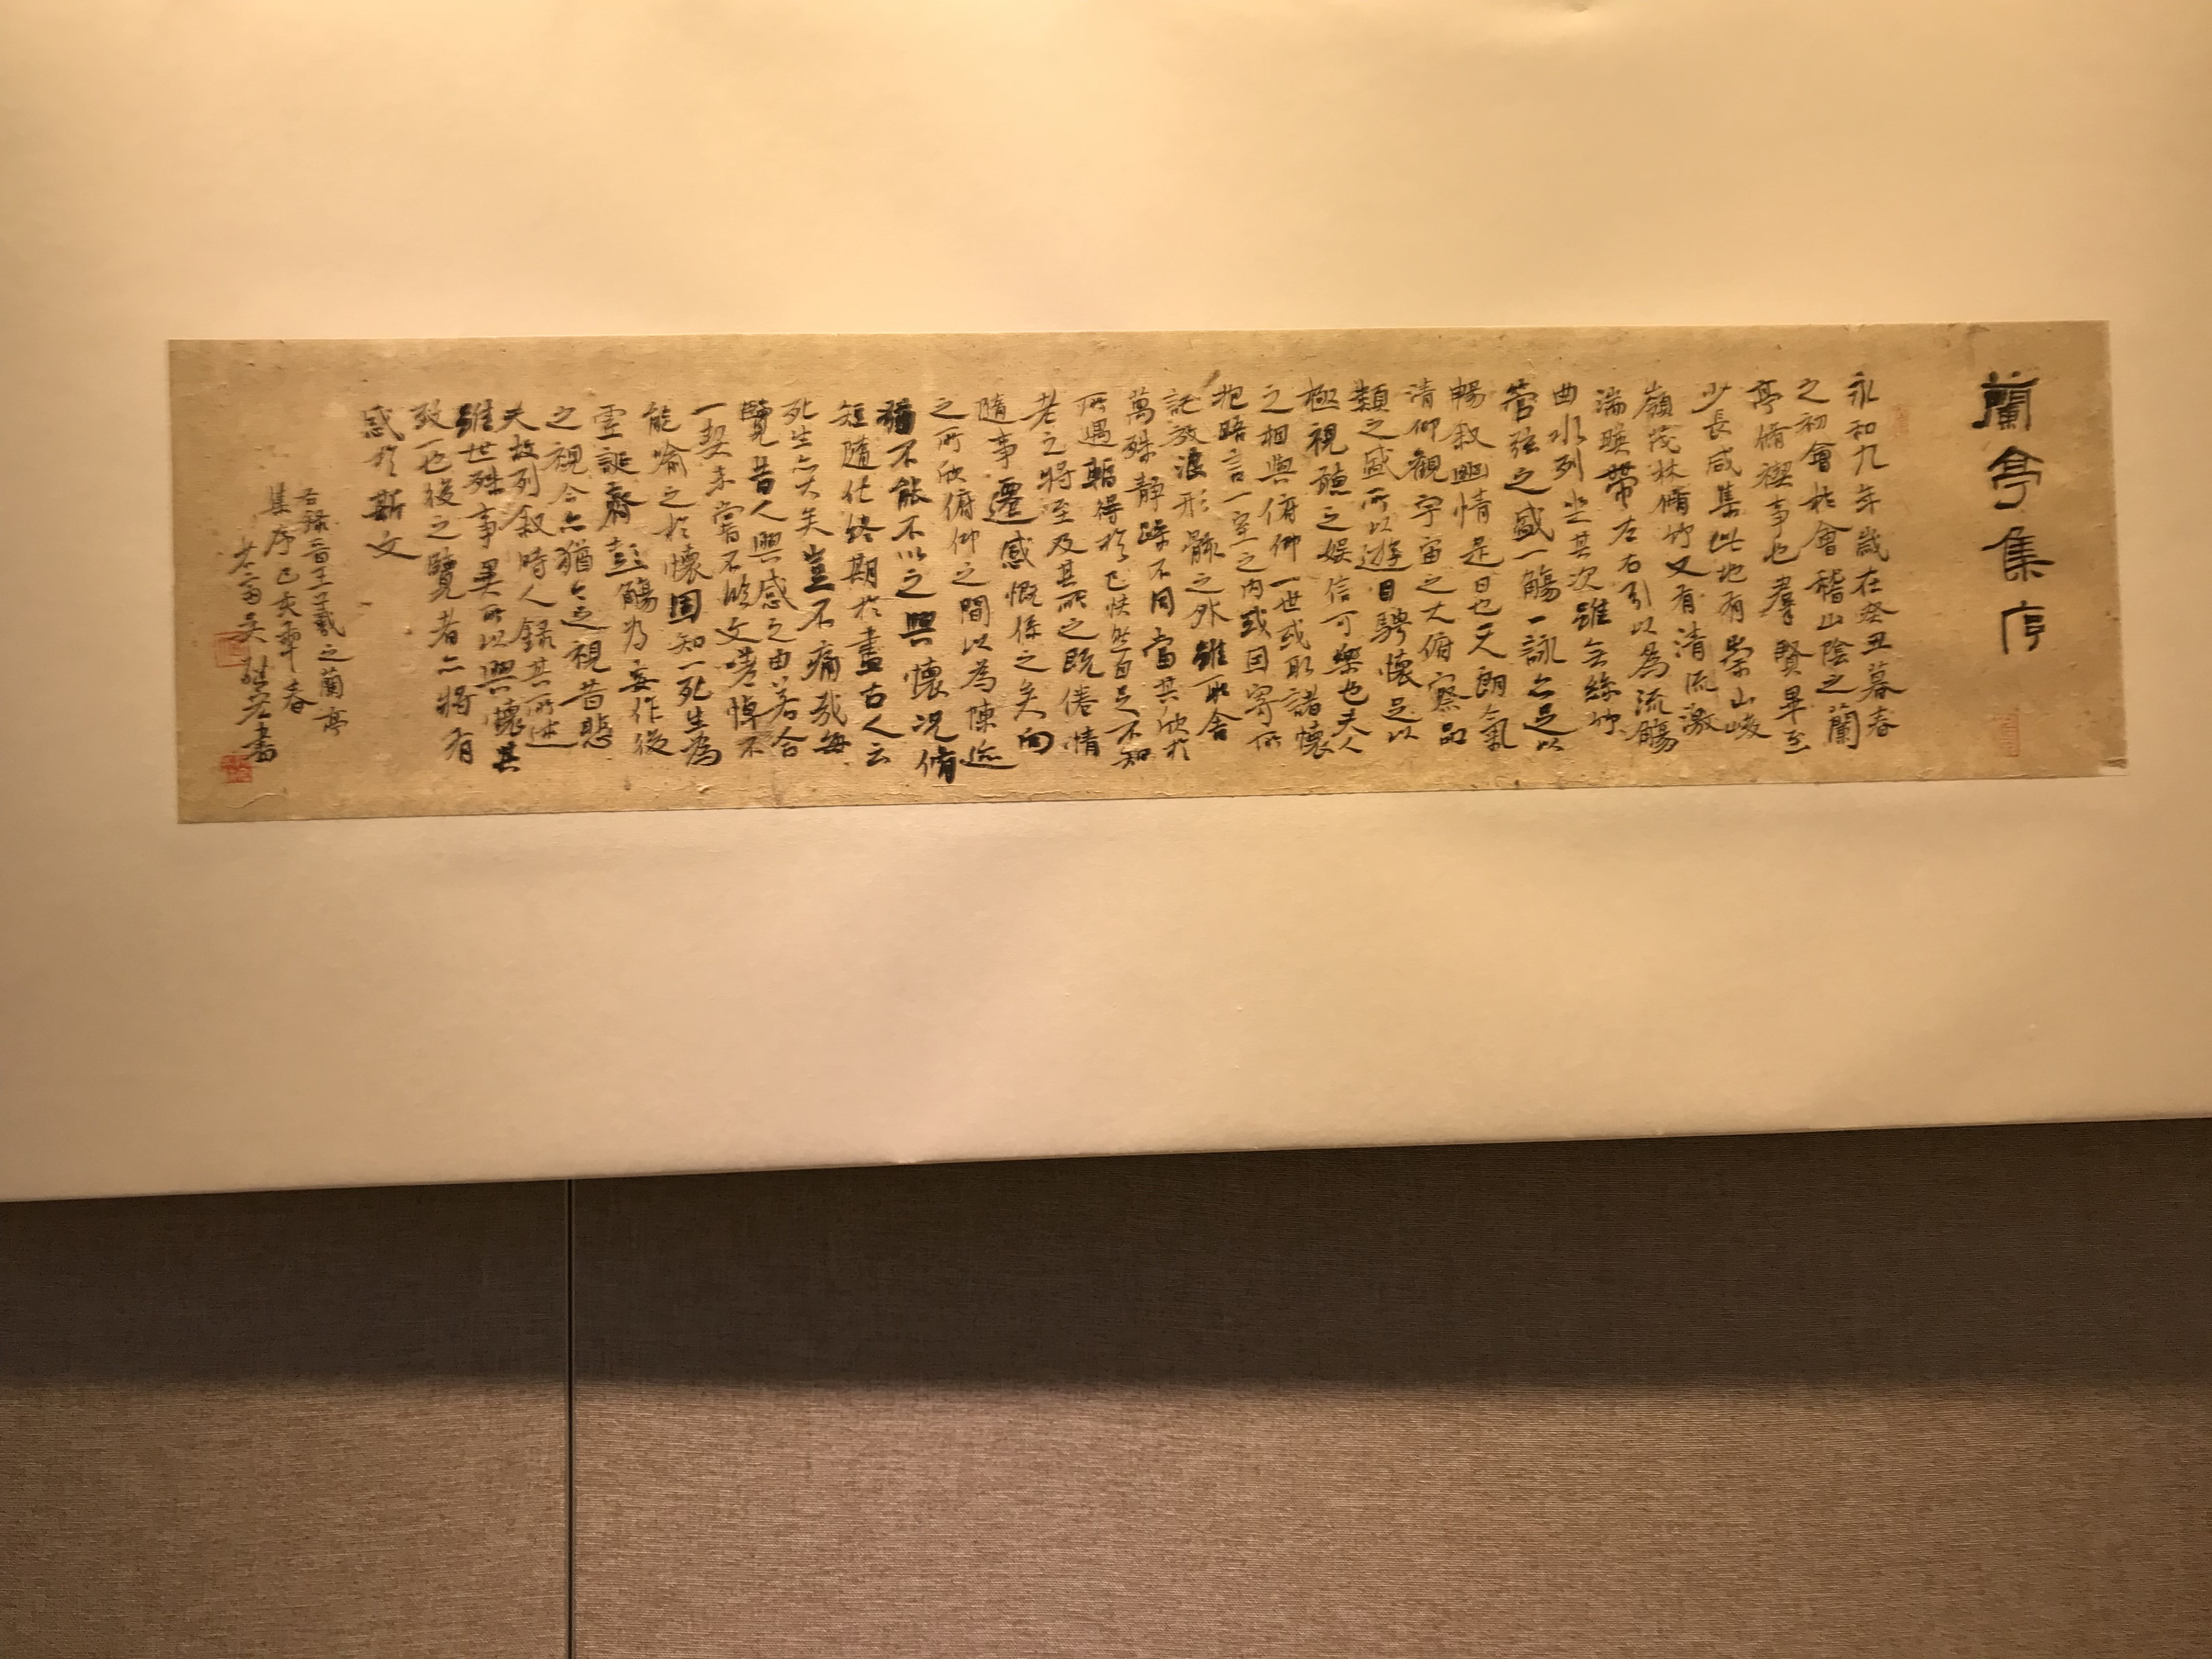 蘭亭集序
永和九年歲在癸丑暮春
之初會於會稽山陰之蘭
亭脩禊事也羣賢畢至
少長咸集此地有崇山峻
嶺茂林脩竹又有清流激
湍暎帶左右引以為流觴
曲水列坐其次雖無絲竹
管弦之盛一觴一詠亦足以
暢叙幽情是日也天朗氣
清仰觀宇宙之大俯察品
類之盛所以遊目騁懷足以
極視聽之娛信可樂也夫人
之相與俯仰一世或取諸懷
抱晤言一室之內或因寄所
託放浪形骸之外雖取舍
萬殊靜躁不同當其欣於
所遇暫得於己怏然自足不知
老之將至及其所之既倦情
隨事遷感慨係之矣向
之所欣俯仰之間以為陳迹
猶不能不以之興懷况脩
短隨化終期於盡古人云
死生亦大矣豈不痛哉每
覽昔人興感之由若合
一契未嘗不臨文嗟悼不
能喻之於懷固知一死生為
虛誕齊彭殤為妄作後
之視今亦猶今之視昔悲
夫故列叙時人錄其所述
雖世殊事異所以興懷其
致一也後之覽者亦將有
感於斯文
右録晉王羲之蘭亭
集序己亥年春
吳 書